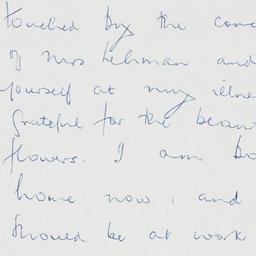 touched by the conc
of Mrs Lehman and
yourself at my illne
grateful for the beau
flowers. I am ba
home now, and
should be at work